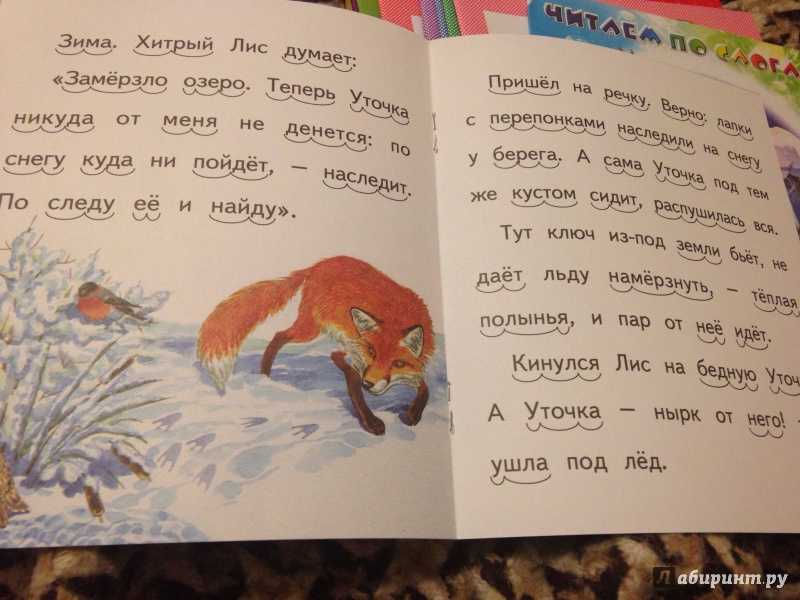 Зима. Хитрый Лис думает:
«Замёрзло озеро. Теперь Уточка
никуда от меня не денется: по
снегу куда ни пойдёт, – наследит.
По следу её и найду».
ЧИТАЕМ ПО СЛОГА
Пришёл на речку. Верно: лапки
с перепонками наследили на снегу
у берега. А сама Уточка под тем
же кустом сидит, распушилась вся.
Тут ключ из-под земли бьёт, не
даёт льду намёрзнуть, – тёплая
полынья, и пар от неё идёт.
Кинулся Лис на бедную Уточ
А Уточка – нырк от него! –
ушла под лёд.
Лабиринт.ру